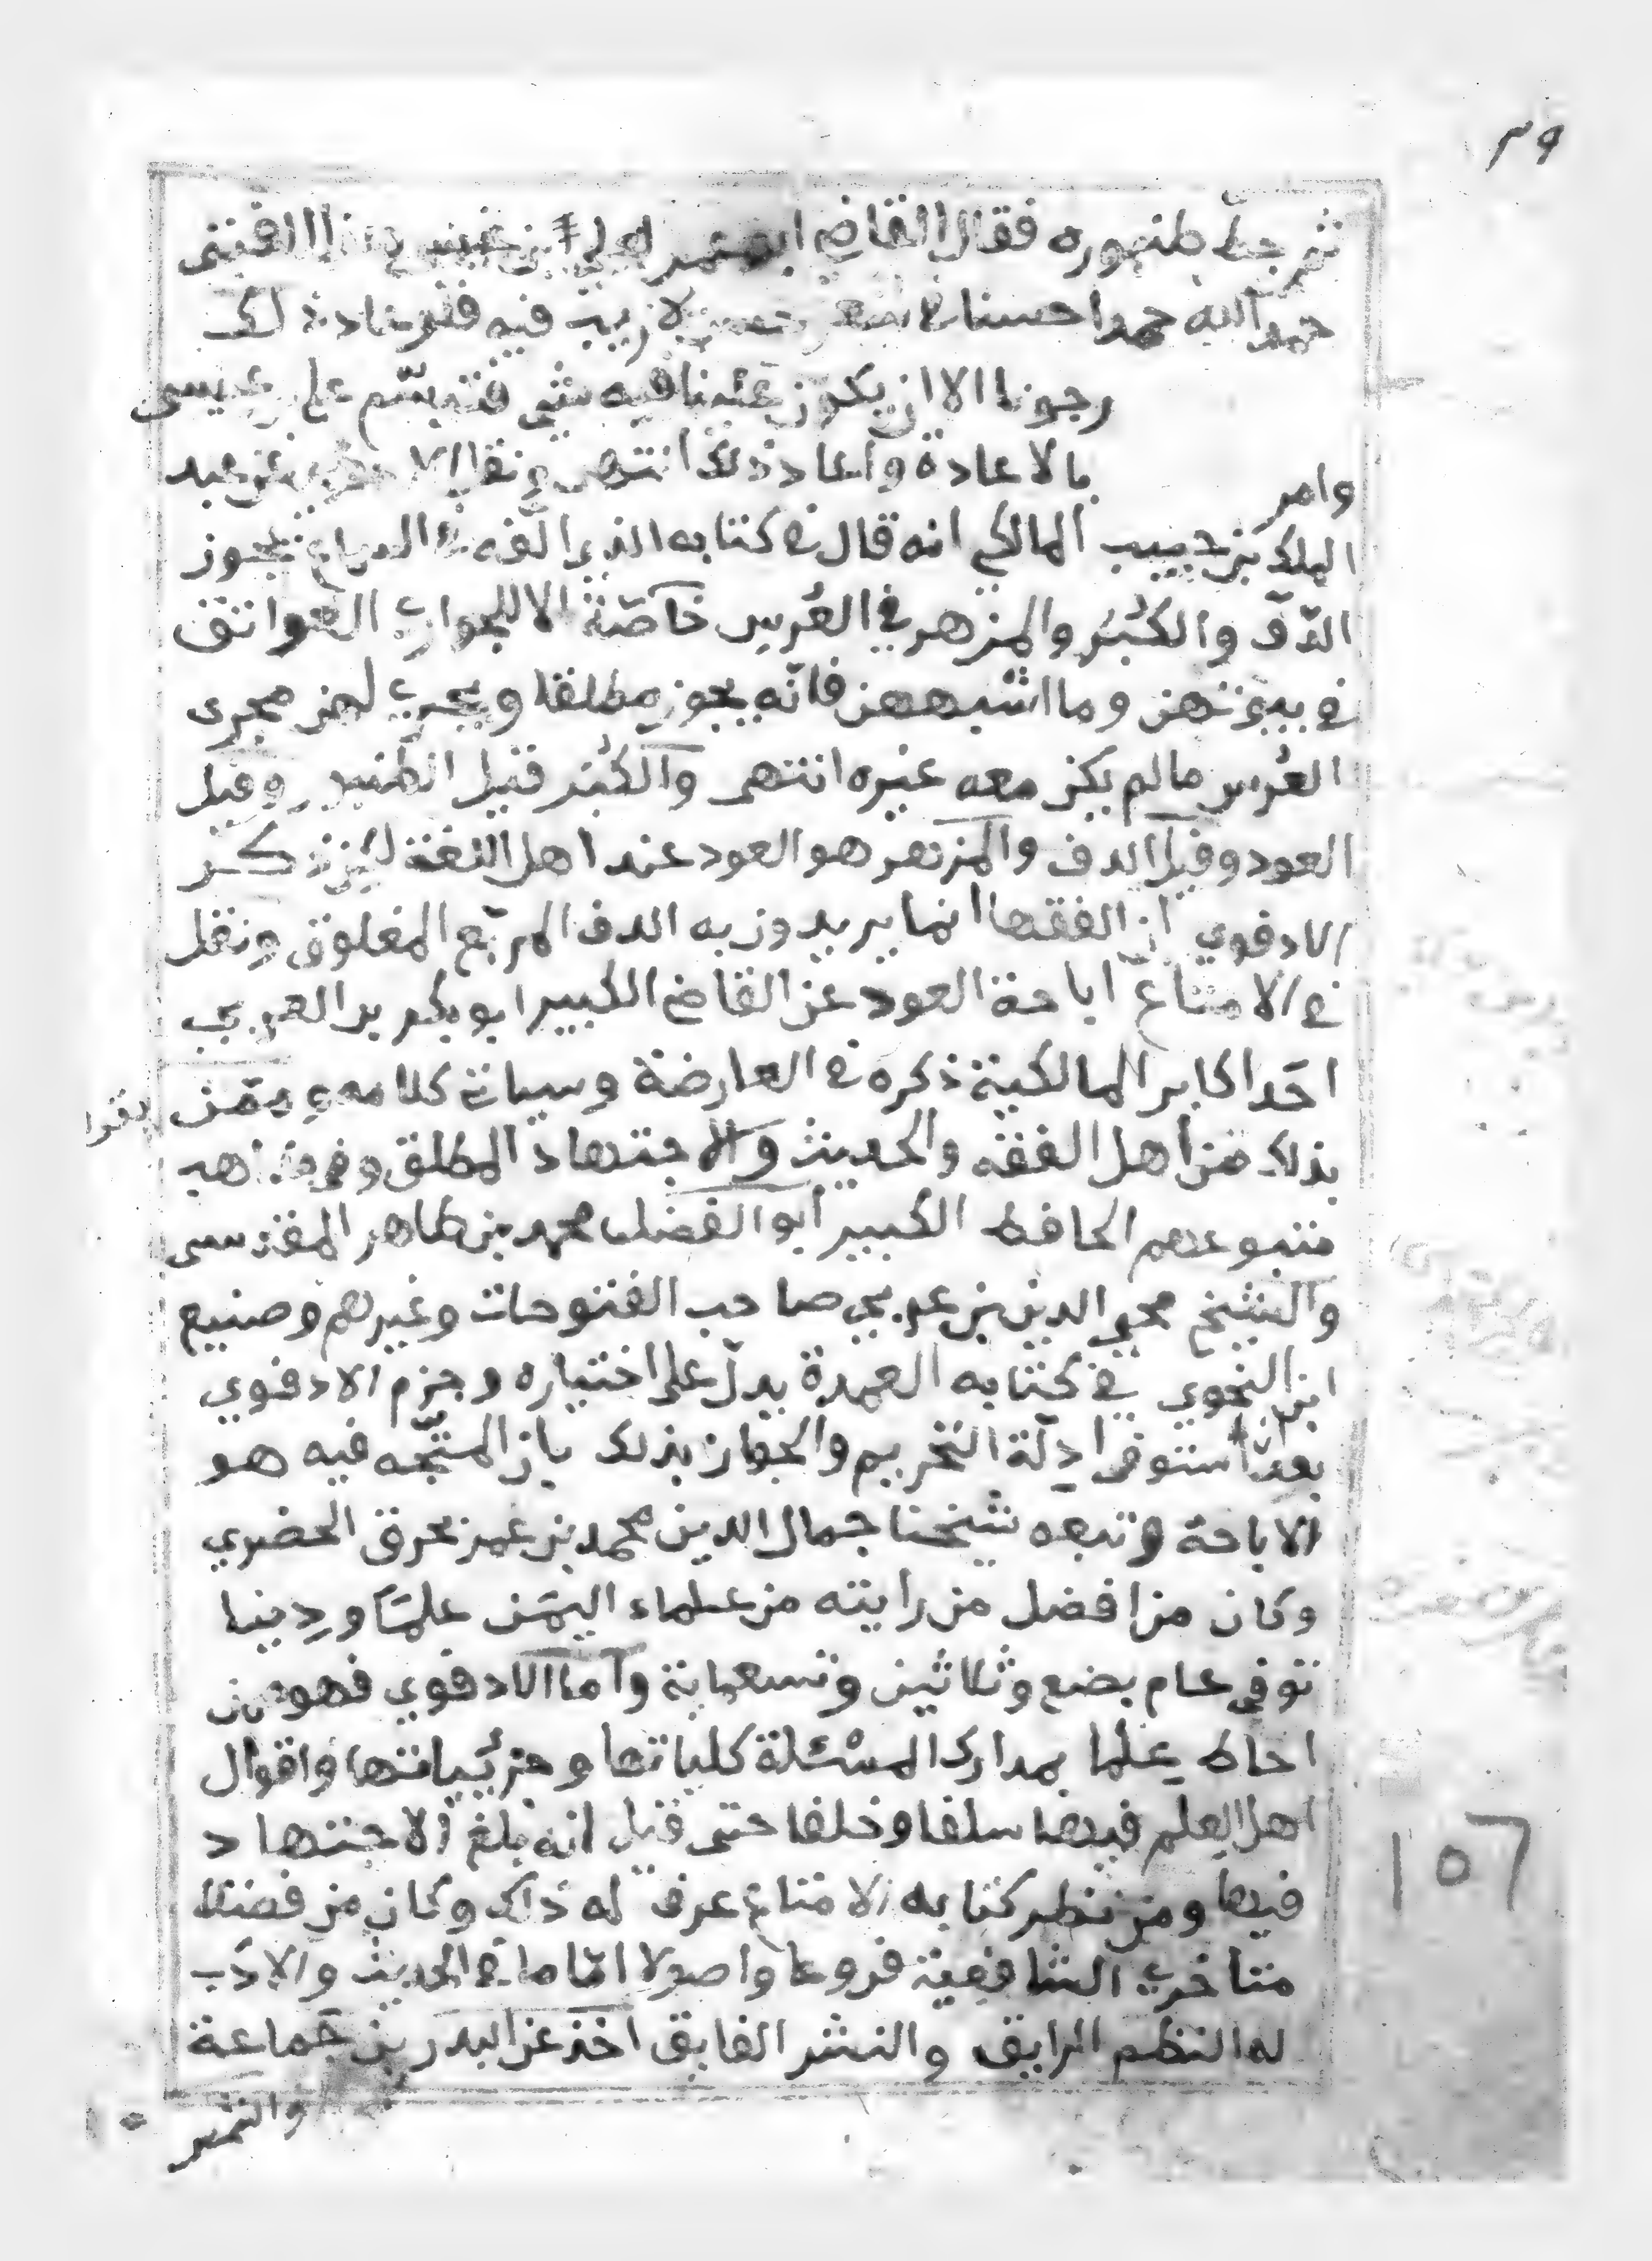 ٣٩
ثم حط طنبوره فقال القاضي ابو عمر لعلي بن
حمد الله حمدا حسنا لا ريب فيه فلو عاد ذلك
رجونا الا ان يكون عندنا فيه شي فتبسم علي بن عيسى
وامر بالاعادة واعاد ذلك انتهى ونقل الادفوي عن عبد
الملك بن حبيب المالكي انه قال في كتابه الذي الفه في السماع يجوز
الدّف والكَبَر والمزهر في العُرس خاصّة الا للجواري العواتق
في بيوتهن وما اشبههن فانّه يجوز مطلقا ويجري لهن مجرى
العُرس مالم يكن معه غيره انتهى والكَبَر قيل الطنبور وقيل
العود وقيل الدف والمزهر هو العود عند اهل اللغة لكن ذكر
الادفوي ان الفقها انما يريدون به الدف المربّع المغلوق ونقل
في الامتاع اباحة العود عن القاضي الكبير ابو بكر بن العربي
احَد اكابر المالكية ذكره في العارضة وسياتي كلامه وممّن يقول
بذلك من اهل الفقه والحديث والاجتهاد المطلق وفي مذاهب
متبوعهم الحافظ الكبير ابو الفضل محمد بن طاهر المقدسي
والشيخ محيي الدين بن عربي صاحب الفتوحات وغيرهم وصنيع
ابن النحوي في كتابه العمدة يدلّ على اختياره وجزم الادفوي
بعد استوفى ادلّة التحريم والجواز بذلك بان المتّجه فيه هو
الاباحة وتبعه شيخنا جمال الدين محمد بن عمر بحرق الحضرمي
وكان من افضل من رايته من علماء اليمَن علمًا ودِينا
توفي عام بضع وثلاثين وتسعماية وامّا الادفوي فهو من
احاط عِلما بمدارك المسئلة كلياتها وجزئياتها واقوال
اهل العِلم فيها سلفا وخلفا حتى قيل انه بلغ الاجتهاد
فيها ومن نظر كتابه الامتاع عرف له ذاك وكان من فضلا
متاخري الشافعية فروعا واصولا امّاما في الحديث والادَب
له النظم الرايق والنثر الفايق اخذ عن البدر بن جَماعة
١٥٦